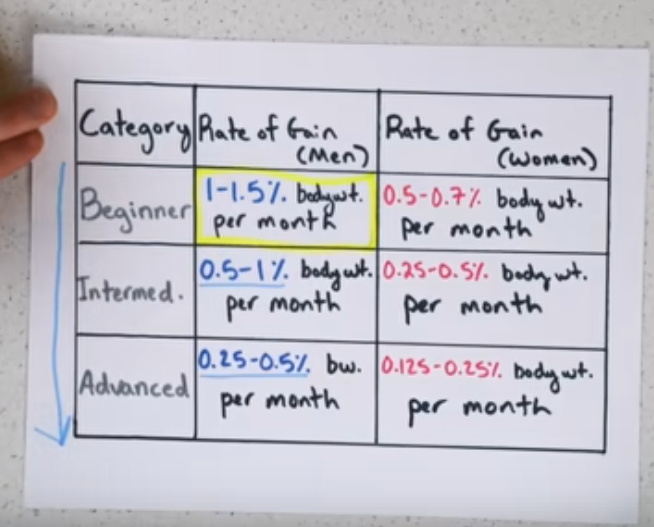 Category
Rate of Gain
(Men)
Rate of Gain
(Women)
Beginner
1-1.5% bodywt.
per month
0.5-0.7% body wt.
per month
Intermed.
0.5-1% bodywt.
per month
0.25-0.5% body wt.
per month
Advanced
0.25-0.5% bw.
per month
0.125-0.25% body wt.
per month